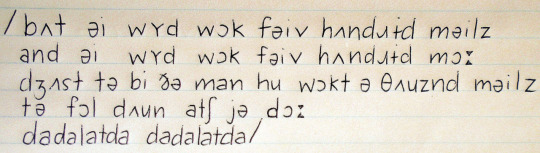 /bʌt əi wɤd wɔk fəiv hʌndɹɪd məilz
and əi wɤd wɔk fəiv hʌndɹɪd mɔː
dʒʌst tə bi ðə man hu wɔkt ə θʌuznd məilz
tə fɔl dʌun atʃ jə dɔː
dadalatda dadalatda/